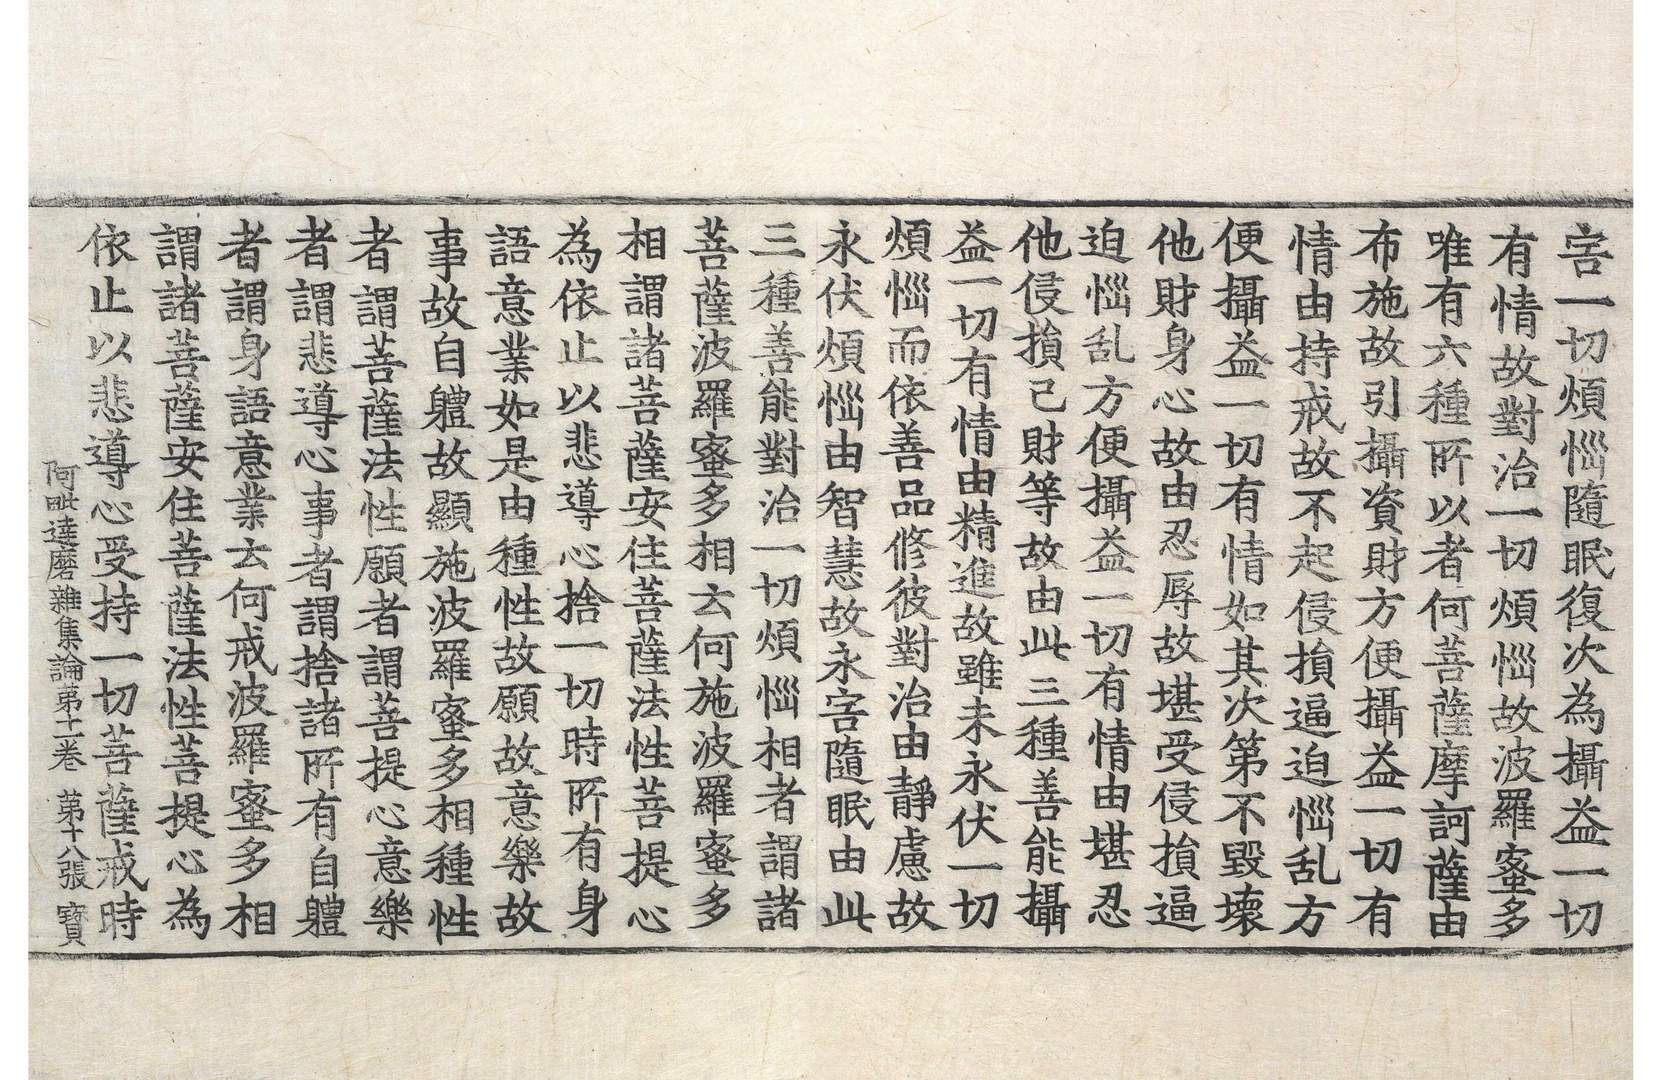 害一切煩惱隨眠復次為攝益一切
有情故對治一切煩惱故波羅蜜多
唯有六種所以者何菩薩摩訶薩由
布施故引攝資財方便攝益一切有
情由持戒故不起侵損逼迫惱乱方
便攝益一切有情如其次第不毀壞
他財身心故由忍辱故堪受侵損逼
迫惱乱方便攝益一切有情由堪忍
他侵損己財等故由此三種善能攝
益一切有情由精進故雖未永伏一切
煩惱而依善品修彼對治由靜慮故
永伏煩惱由智慧故永害隨眠由此
三種善能對治一切煩惱相者謂諸
菩薩波羅蜜多相云何施波羅蜜多
相謂諸菩薩安住菩薩法性菩提心
為依止以悲導心捨一切時所有身
語意業如是由種性故願故意樂故
事故自體故顯施波羅蜜多相種性
者謂菩薩法性願者謂菩提心意樂
者謂悲導心事者謂捨諸所有自體
者謂身語意業云何戒波羅蜜多相
謂諸菩薩安住菩薩法性菩提心為
依止以悲導心受持一切菩薩戒時
阿毗達磨雜集論第十一卷 第十八張 寶